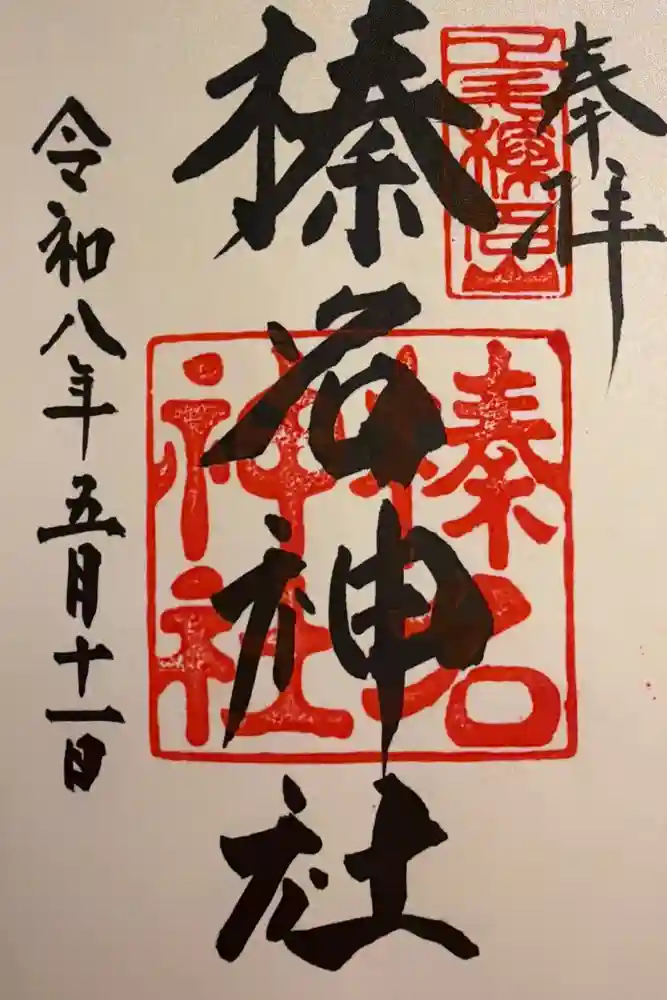 奉拝
榛名神社
令和八年五月十一日
榛名
神社